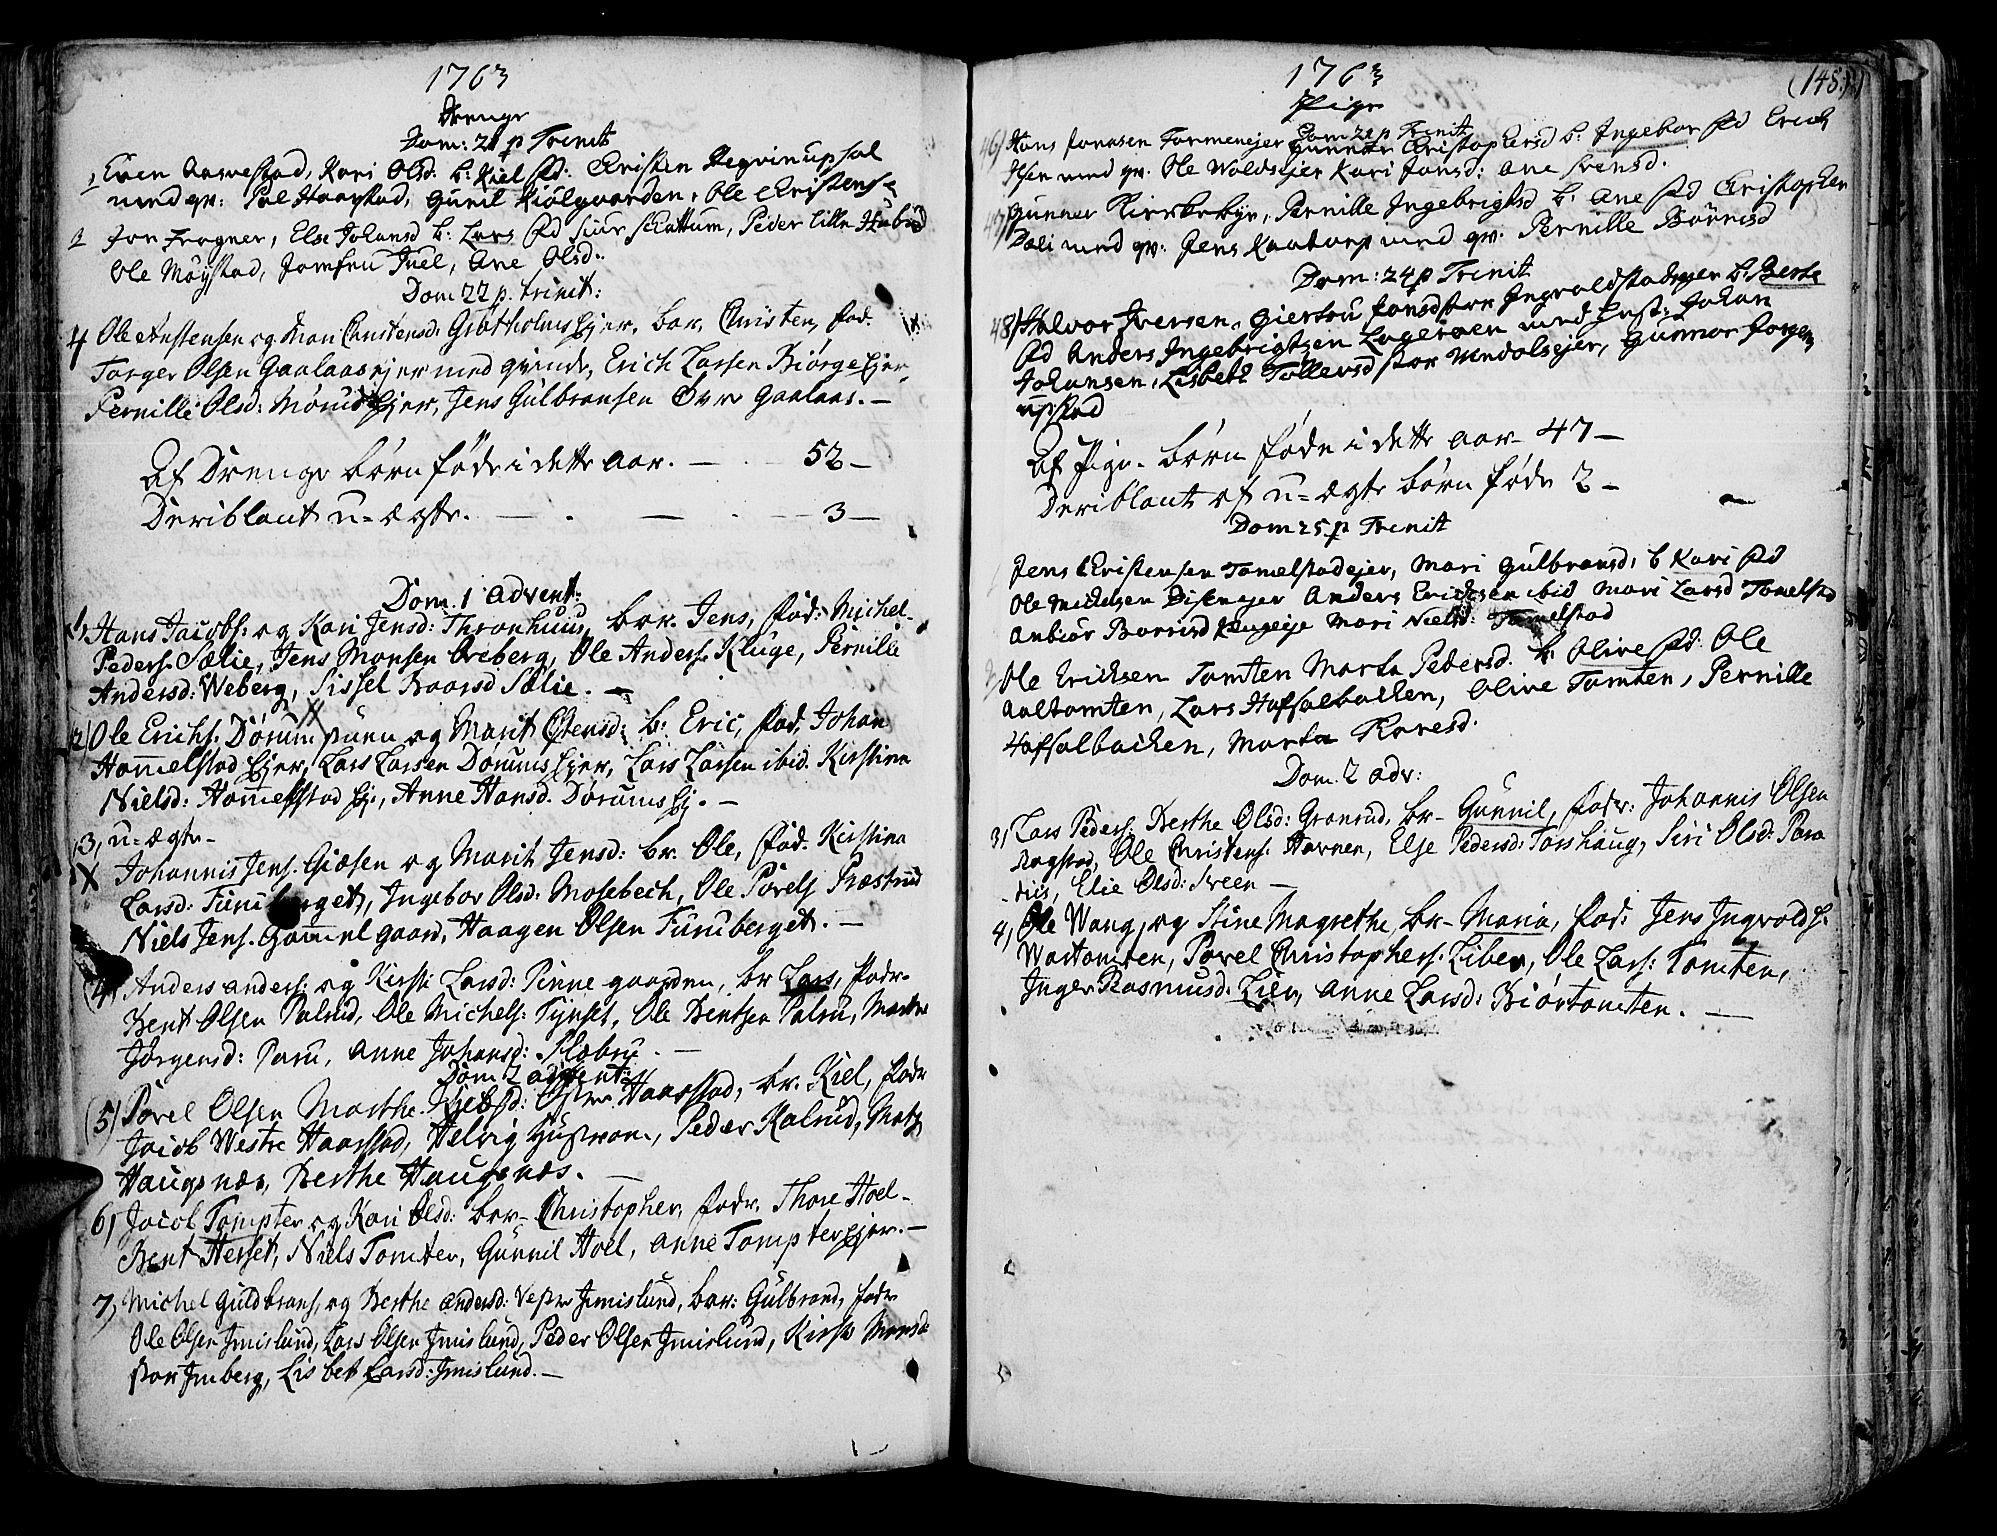 1763
Drenge
Dom: 21 p Trinit
1, Even Aarvestad, Kari Olsd: b: Kiel fd: Cristen
med qv: Pol Haarstad, Gunil Kiølgaarden, Ole Cristens
2 Jon Frogner, Else Johansd b: Lars fd siur schattum, Peder Lille
Ole Møystad, Jomfru Juel, Ane Olsd.
Dom 22 p. trinit:
4 Ole Austensen og Mari Christensd: Ejer, bar, Christen, fad.
Torger Olsen Gaalaas ejer med qvinde, Erich Larsen Biørge Ejer,
Pernille Olsd: Ejer, Jens Gulbransen Øvre Gaalaas. –
Af Drenge børn føde i dette aar. – 52 –
Deriblant u-ægte. – 3 –
Dom. 1 Advent:
1, Hans Jacobs: og Kari Jensd: Thronhuus, bar. Jens, fad: Michel
Peders. Sælie, Jens Monsen Oreberg, Ole Anders. Kluge, Pernille
Andersd: Weberg, Sissel Baarsd Sælie. –
2) Ole Erichs. Dørum og Marit Østensd: b: Eric, fad, Johan
Hommelstad Ejer, Lars Larsen Dørums Ejer, Lars Larsen ibid. Kirstina
Nielsd: Hommelstad Ej., Anne Hansd. Dørums Ej. –
3, u-ægte-
Johannis Jens. Giæsen og Marit Jensd: br. Ole, fad. Kirstina
Larsd: Furuberget, Ingebor Olsd: Mosebech, Ole Povels Præstrud
Niels Jens. Gammelgaard, Haagen Olsen Furuberget. –
(4) Anders anders: og Kirsti Larsd: Pinne gaarden, br Lars, fadr.
Bent Olsen Palrud, Ole Michels: Tynset, Ole Bentsen Palru, Marte
Jørgensd: Paru, anne Johansd: Slæbru. –
Dom 2 advent:
(5) Povel Olsen Marthe Østre Haarstad, br. Kiel, fadr
Jacob Westre Haarstad, Helvig Hustroe, Peder Kalrud, Matz
Haugsnæs, Berthe Haugsnæs. –
6) Jacob Tompter og Kari Olsd: bar- Christopher, fadr, Thore Hoel-
Bent Herset, Niels Tomter, Gunnil Hoel, anne Tompter Ejer. –
7, Michel Guldbrans, og Berthe andersd: Vestre Jmislund, bar: Gulbrand, fadr
Ole Olsen Jmislund, Lars Olsen Jmislund, Peder Olsen Jmislund, Kirsti Monsd
stor Jmberg, Lisbet Larsd: Jmislund. –
1763 (148.)
Pige
Dom 21 p Trinit
46) Hans Jonasen Formenejer Gunnor Cristophersd b: Ingebor fd Erich
Jhsen med qv. Ole Woldsejer Kari Jonsd: ane Svensd.
47) Gunner Kirckebye, Pernille Ingebrigtsd b: Ane fd Christopher
Dæli med qv: Jens Kaatorp med qv. Pernille Børrisd
Dom: 24 p Trinit
48) Halvor Iversen, Giertru Jonsd stor Ingvoldstadejer b: Berte
fd Anders Ingebrigtsen Lageroen med hust: Johan
Johansen, Lisbeth Tollersd stor Wendolsejer, Gunnor Jorgens
upstad
Af Pige- børn føde i dette aar – 47 –
Deriblant af u-ægte børn føde 2 –
Dom 25 p Trinit
Jens Cristensen Tomelstadejer, Mari Gulbransd: b Kari fd
Ole Mickelsen Disenejer Anders Ericksen ibid Mari Larsd Tomelstad
Anbiør Borrisd Mari Nielsd: Tomelstad
2, Ole Ericksen Tomten Marta Pedersd. b: Olive fd: Ole
Aaltomten, Lars Hafsalbacken, Olive Tomten, Pernille
Hafsalbacken, Marta Karesd.
Dom. 2 adv:
3, Lars Peders. Berthe Olsd: Granrud, br- Gunnil, fadr: Johannis Olsen
Rogstad, Ole Christens. Havnen, Else Pedersd: Torshaug, Siri Olsd: Para
-diis, Elie Olsd: Sveen –
4, Ole Wang, og Stine Magrethe, br- Maria, fad: Jens Jngvolds.
Wartomten, Povel Christophers. Liber, Ole Lars: Tomten,
Inger Rasmusd. Lier, anne Larsd: Biørtomten. –